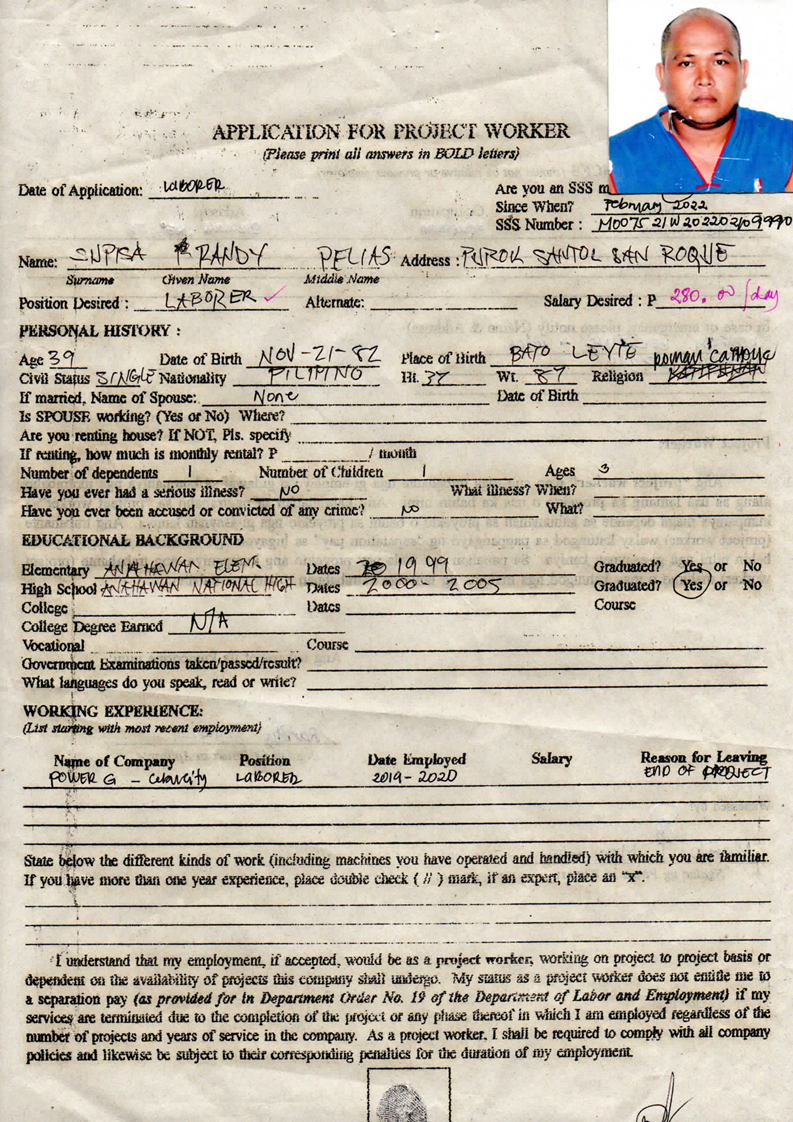 APPLICATION FOR PROJECT WORKER
(Please print all answers in BOLD letters)
Date of Application: LABORER
Are you an SSS m
Since When? February 2022
SSS Number :
Name: RANDY PELIAS Address : PUROK SANTOL SAN ROQUE
Surname Given Name Middle Name
Position Desired : LABORER ✓ Alternate: Salary Desired : P 280.00/day
PERSONAL HISTORY :
Age 39 Date of Birth NOV-21-82 Place of Birth BATO LEYTE
Civil Status SINGLE Nationality FILIPINO Ht. 37 Wt. 87 Religion Roman
If married, Name of Spouse: None Date of Birth
Is SPOUSE working? (Yes or No) Where?
Are you renting house? If NOT, Pls. specify
If renting, how much is monthly rental? P / month
Number of dependents 1 Number of Children 1 Ages 3
Have you ever had a serious illness? NO What illness? When?
Have you ever been accused or convicted of any crime? NO What?
EDUCATIONAL BACKGROUND
Elementary ANAHAWAN ELEM. Dates 1999 Graduated? Yes or No
High School ANAHAWAN NATIONAL HIGH Dates 2000-2005 Graduated? Yes or No
College Dates Course
College Degree Earned N/A
Vocational Course
Government Examinations taken/passed/result?
What languages do you speak, read or write?
WORKING EXPERIENCE:
(List starting with most recent employment)
Name of Company Position Date Employed Salary Reason for Leaving
POWER G - LABORER 2019-2020 END OF PROJECT
State below the different kinds of work (including machines you have operated and handled) with which you are familiar.
If you have more than one year experience, place double check ( // ) mark, if an expert, place an "x".
I understand that my employment, if accepted, would be as a project worker, working on project to project basis or
dependent on the availability of projects this company shall undergo. My status as a project worker does not entitle me to
a separation pay (as provided for in Department Order No. 19 of the Department of Labor and Employment) if my
services are terminated due to the completion of the project or any phase thereof in which I am employed regardless of the
number of projects and years of service in the company. As a project worker, I shall be required to comply with all company
policies and likewise be subject to their corresponding penalties for the duration of my employment.